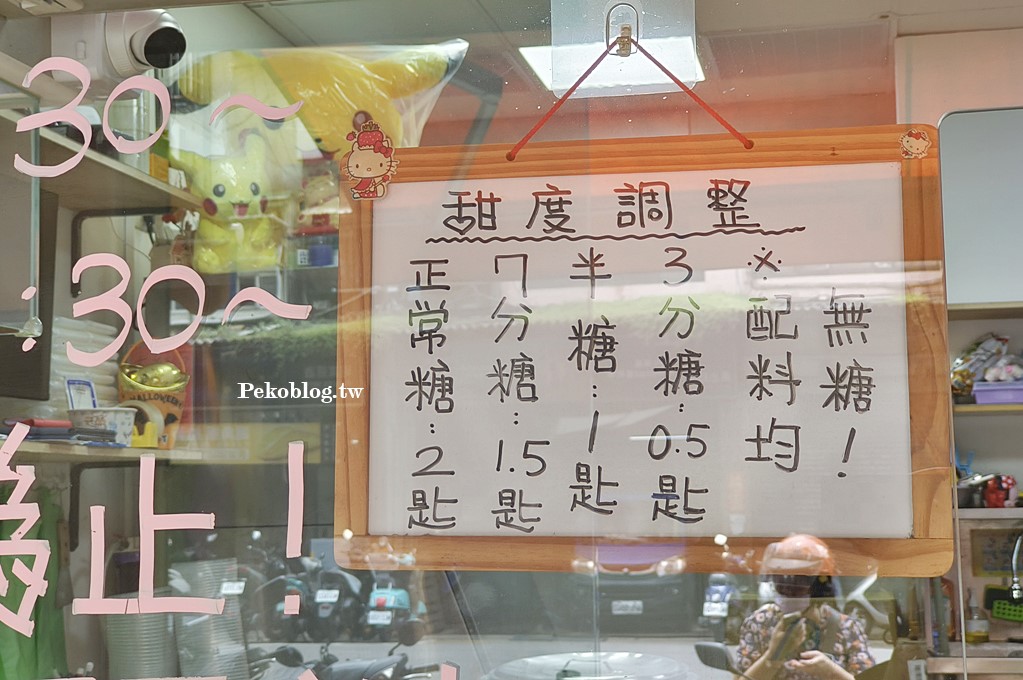 30~
:30~
止!
甜度調整
正常糖:2匙
7分糖:1.5匙
半糖:1匙
3分糖:0.5匙
※配料均
無糖!
Pekoblog.tw
HALLOWEEN